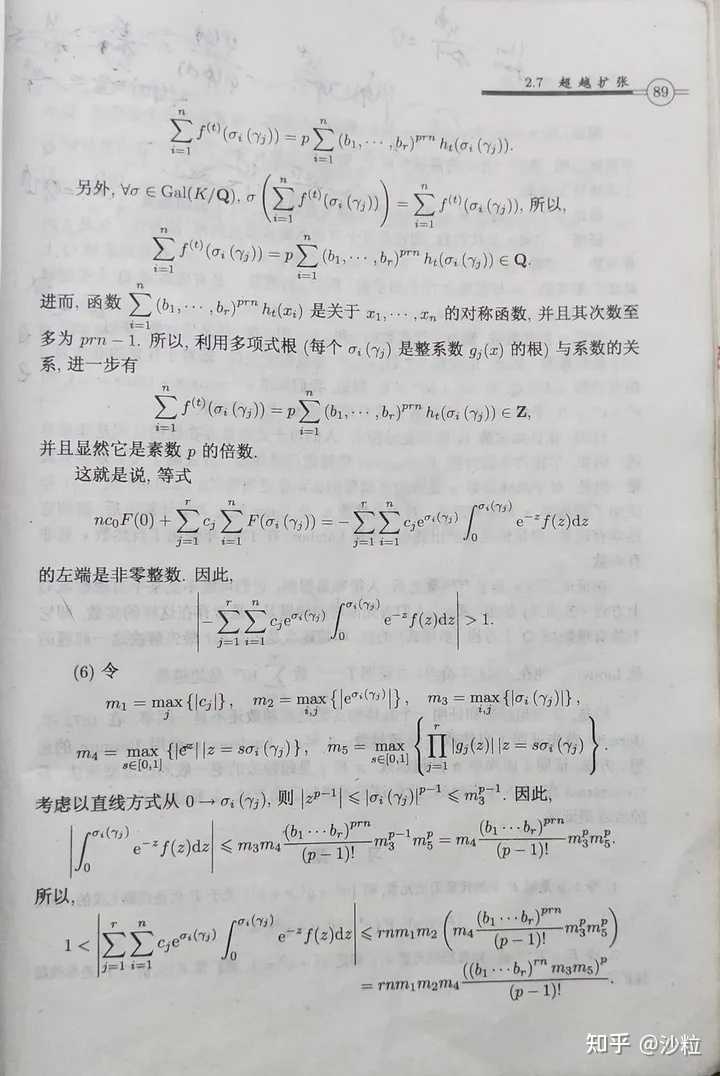 2.7 超越扩张 89
$$\sum_{i=1}^{n} f^{(t)}(\sigma_i(\gamma_j)) = p\sum_{i=1}^{n}(b_1,\cdots,b_r)^{prn} h_t(\sigma_i(\gamma_j)).$$
另外, $\forall\sigma\in \mathrm{Gal}(K/\mathbf{Q})$, $\sigma\left(\sum_{i=1}^{n} f^{(t)}(\sigma_i(\gamma_j))\right) = \sum_{i=1}^{n} f^{(t)}(\sigma_i(\gamma_j))$, 所以,
$$\sum_{i=1}^{n} f^{(t)}(\sigma_i(\gamma_j)) = p\sum_{i=1}^{n}(b_1,\cdots,b_r)^{prn} h_t(\sigma_i(\gamma_j)) \in \mathbf{Q}.$$
进而, 函数 $\sum_{i=1}^{n}(b_1,\cdots,b_r)^{prn} h_t(x_i)$ 是关于 $x_1,\cdots,x_n$ 的对称函数, 并且其次数至
多为 $prn-1$. 所以, 利用多项式根 (每个 $\sigma_i(\gamma_j)$ 是整系数 $g_j(x)$ 的根) 与系数的关
系, 进一步有
$$\sum_{i=1}^{n} f^{(t)}(\sigma_i(\gamma_j)) = p\sum_{i=1}^{n}(b_1,\cdots,b_r)^{prn} h_t(\sigma_i(\gamma_j)) \in \mathbf{Z},$$
并且显然它是素数 $p$ 的倍数.
这就是说, 等式
$$nc_0F(0) + \sum_{j=1}^{r} c_j \sum_{i=1}^{n} F(\sigma_i(\gamma_j)) = -\sum_{j=1}^{r}\sum_{i=1}^{n} c_j \mathrm{e}^{\sigma_i(\gamma_j)} \int_0^{\sigma_i(\gamma_j)} \mathrm{e}^{-z} f(z)\mathrm{d}z$$
的左端是非零整数. 因此,
$$\left|-\sum_{j=1}^{r}\sum_{i=1}^{n} c_j \mathrm{e}^{\sigma_i(\gamma_j)} \int_0^{\sigma_i(\gamma_j)} \mathrm{e}^{-z} f(z)\mathrm{d}z\right| > 1.$$
(6) 令
$$m_1 = \max_{j}\{|c_j|\},\quad m_2 = \max_{i,j}\{|\mathrm{e}^{\sigma_i(\gamma_j)}|\},\quad m_3 = \max_{i,j}\{|\sigma_i(\gamma_j)|\},$$
$$m_4 = \max_{s\in[0,1]}\{|\mathrm{e}^{z}| \,|z = s\sigma_i(\gamma_j)\},\quad m_5 = \max_{s\in[0,1]}\left\{\prod_{j=1}^{r}|g_j(z)| \,|z = s\sigma_i(\gamma_j)\right\}.$$
考虑以直线方式从 $0 \to \sigma_i(\gamma_j)$, 则 $|z^{p-1}| \leqslant |\sigma_i(\gamma_j)|^{p-1} \leqslant m_3^{p-1}$. 因此,
$$\left|\int_0^{\sigma_i(\gamma_j)} \mathrm{e}^{-z} f(z)\mathrm{d}z\right| \leqslant m_3 m_4 \frac{(b_1\cdots b_r)^{prn}}{(p-1)!} m_3^{p-1} m_5^{p} = m_4 \frac{(b_1\cdots b_r)^{prn}}{(p-1)!} m_3^{p} m_5^{p}.$$
所以,
$$1 < \left|\sum_{j=1}^{r}\sum_{i=1}^{n} c_j \mathrm{e}^{\sigma_i(\gamma_j)} \int_0^{\sigma_i(\gamma_j)} \mathrm{e}^{-z} f(z)\mathrm{d}z\right| \leqslant rnm_1m_2\left(m_4 \frac{(b_1\cdots b_r)^{prn}}{(p-1)!} m_3^{p} m_5^{p}\right)$$
$$= rnm_1m_2m_4 \frac{((b_1\cdots b_r)^{rn} m_3 m_5)^{p}}{(p-1)!}.$$
知乎 @沙粒